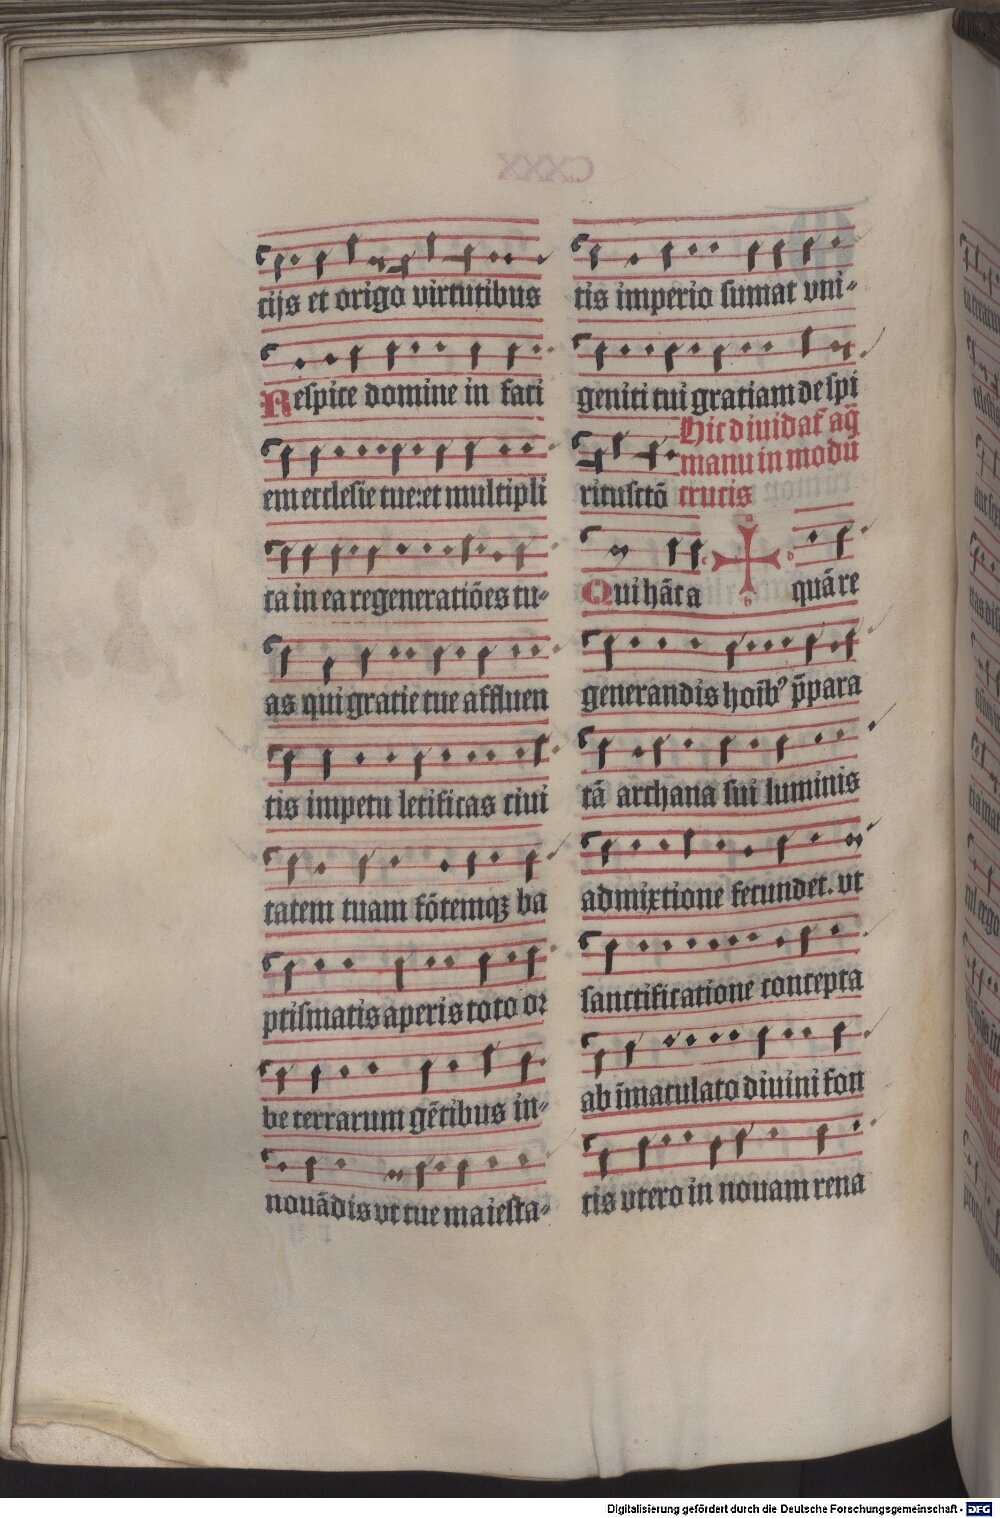 CXXX
cijs et origo virtutibus
Respice domine in faci
em ecclesie tue: et multipli
ca in ea regeneratiōes tu-
as qui gratie tue affluen
tis impetu letificas ciui
tatem tuam fōtemqꝫ ba
ptismatis aperis toto or
be terrarum gētibus in-
nouādis vt tue maiesta-
tis imperio sumat vni-
geniti tui gratiam de spi
ritu sctō
Hic diuidat aq̄
manu in modū
crucis
Qui hāc a quā re
generandis hoībꝰ p̄para
tā archana sui luminis
admixtione fecundet. vt
sanctificatione concepta
ab īmaculato diuini fon
tis vtero in nouam rena
Digitalisierung gefördert durch die Deutsche Forschungsgemeinschaft - DFG